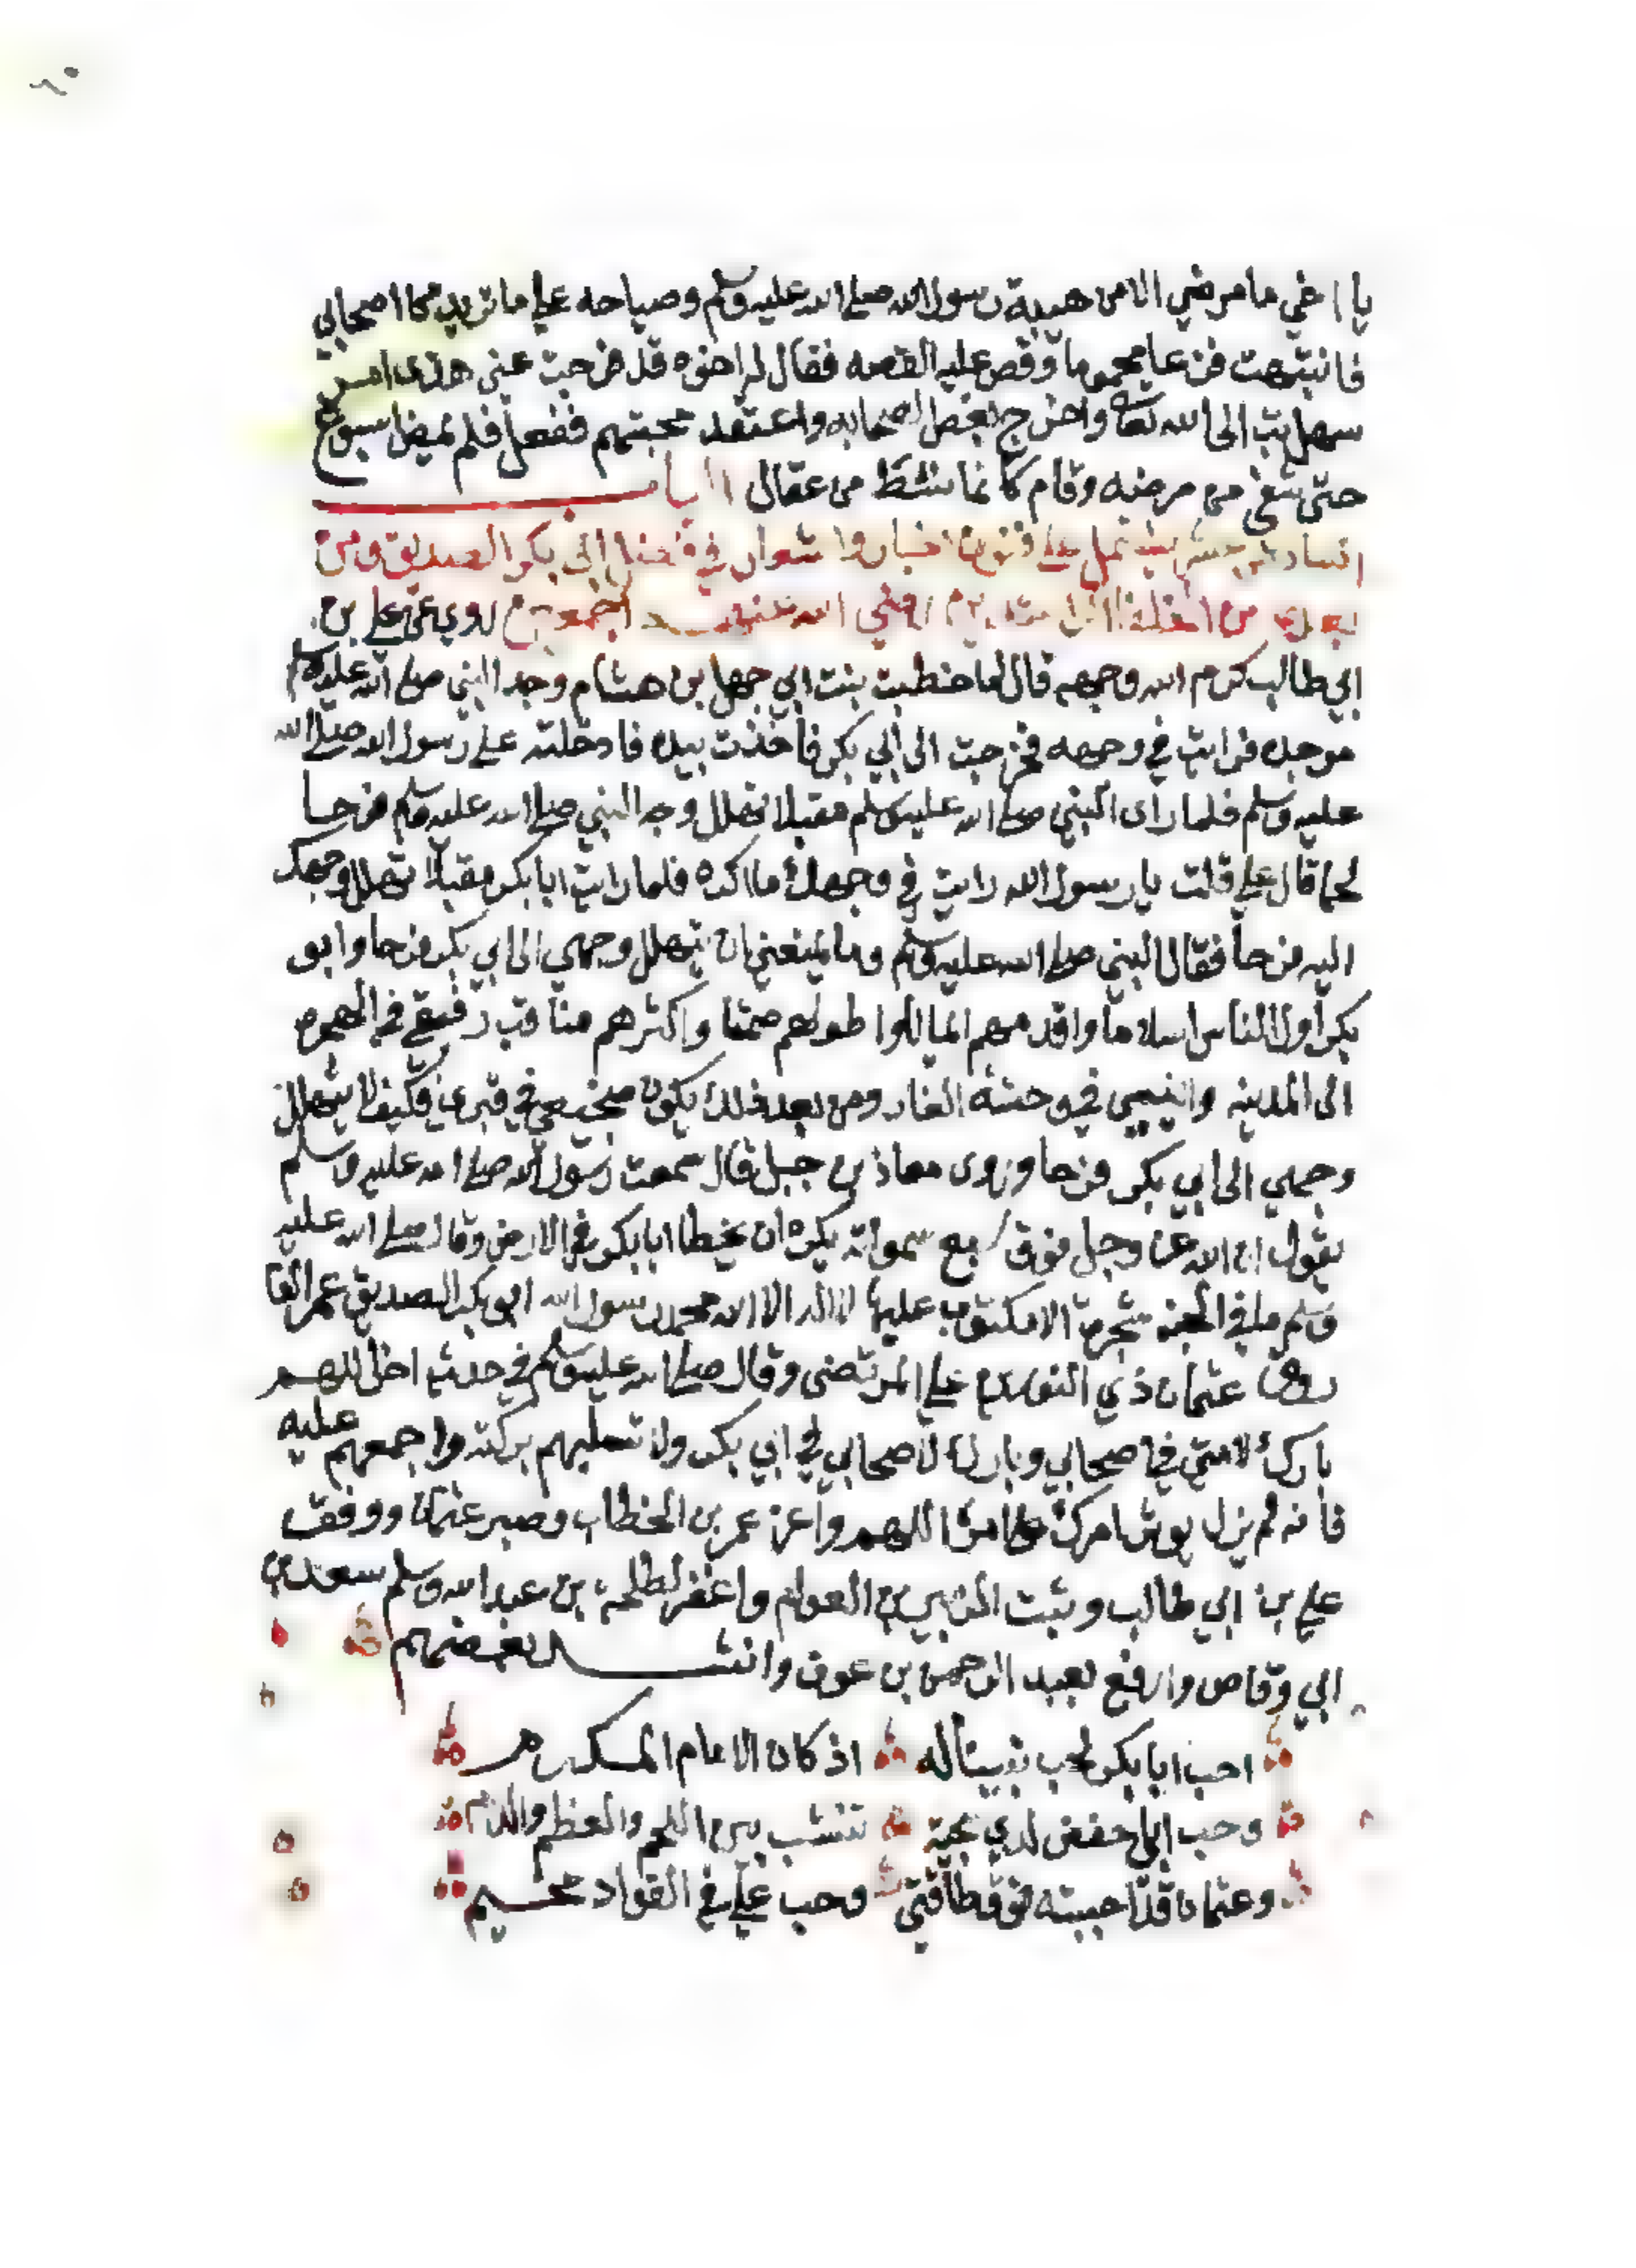 يا اخي ما مرضي الا من هيبة رسول الله صلى الله عليه وسلم وصياحه علي ما تريد مح اصحابي
فانتبهت فزعا محموما وقص عليه القصه فقال له اخوه قد فرحت عني هذا امر
سهل تب الى الله تعالى واخرج بغض الصحابه واعتقد محبتهم ففعل فلم يمض اسبوع
حتى شفي من مرضه وقام كانما نشط من عقال الباب
السادس عشر يشتمل على فنون اخبار واشعار في فضل ابي بكر الصديق ومن
بعده من الخلفا رضي الله عنهم اجمعين روي عن علي بن
ابي طالب كرم الله وجهه قال لما خطبت بنت ابي جهل بن هشام وجد النبي صلى الله عليه وسلم
موجده فرايت في وجهه فخرجت الى ابي بكر فاخذت بيده فادخلته على رسول الله صلى الله
عليه وسلم فلما راى النبي صلى الله عليه وسلم مقبلا تهلل وجه النبي صلى الله عليه وسلم فرحا
لحما قال علي قلت يا رسول الله رايت في وجهك ما اكره فلما رايت ابا بكر مقبلا تهلل وجهك
اليه فرحا فقال النبي صلى الله عليه وسلم وما يمنعني ان يتهلل وجهي الى ابي بكر فرحا وابو
بكر اول الناس اسلاما واقدمهم ايمانا واطولهم صمتا واكثرهم مناقب رفيقي في الهجره
الى المدينه وانيسي في وحشة الغار ومن بعد ذلك يكون ضجيعي في قبري فكيف لا يتهلل
وجهي الى ابي بكر فرحا وروى معاذ بن جبل قال سمعت رسول الله صلى الله عليه وسلم
يقول ان الله عز وجل فوق سبع سمواته يكره ان يخطا ابا بكر في الارض وقال صلى الله عليه
وسلم ما في الجنه شجرة الا مكتوب عليها لا اله الا الله محمد رسول الله ابو بكر الصديق عمر الفا
روق عثمان ذي النورين علي المرتضى وقال صلى الله عليه وسلم في حديث اخر اللهم
بارك لامتي في اصحابي وبارك لاصحابي في ابي بكر ولا تسلبهم بركته واجمعهم عليه
فانه لم يزل يوثر امرك على امره اللهم واعز عمر بن الخطاب وصبر عثمان ووفق
علي بن ابي طالب وثبت الزبير بن العوام واغفر لطلحة بن عبد الله وسلم سعد بن
ابي وقاص وارفع بعبد الرحمن بن عوف وانشد بعضهم
احب ابا بكر لحب نبينا له اذ كان الامام المكرم
وحب ابي حفص لدي محبة تنشب بين اللحم والعظم والدم
وعثمان قد احببته فوق طاقتي وحب علي في الفواد مخيم